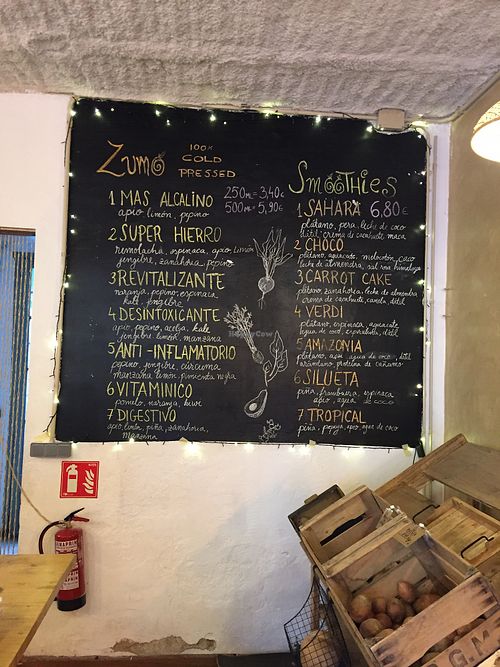 Zumo 100% COLD PRESSED
1 MAS ALCALINO 250ML = 3,40€
apio limón, pepino 500ML = 5,90€
2 SUPER HIERRO
remolacha, espinaca, apio, limón
jengibre, zanahoria, pepino
3 REVITALIZANTE
naranja, pepino, espinaca
kale, jengibre
4 DESINTOXICANTE
apio, pepino, acelga, kale
jengibre, limón, manzana
5 ANTI-INFLAMATORIO
pepino, jengibre, cúrcuma
manzana, limón, pimienta negra
6 VITAMINICO
pomelo, naranja, kiwi
7 DIGESTIVO
apio, limón, piña, zanahoria,
manzana
Smoothies
1 SAHARA 6,80€
plátano, pera, leche de coco
dátil, crema de cacahuete, maca
2 CHOCO
plátano, aguacate, melocotón, caco
leche de almendra, sal rosa himalaya
3 CARROT CAKE
plátano, zanahoria, leche de almendra
crema de cacahuete, canela, dátil
4 VERDI
plátano, espinaca, aguacate
agua de coco, espirulina, dátil
5 AMAZONIA
plátano, açai, agua de coco, dátil
arándano, proteína de cáñamo
6 SILUETA
piña, frambuesa, espinaca
apio, agua de coco
7 TROPICAL
piña, papaya, apio, agua de coco
HappyCow
G.M